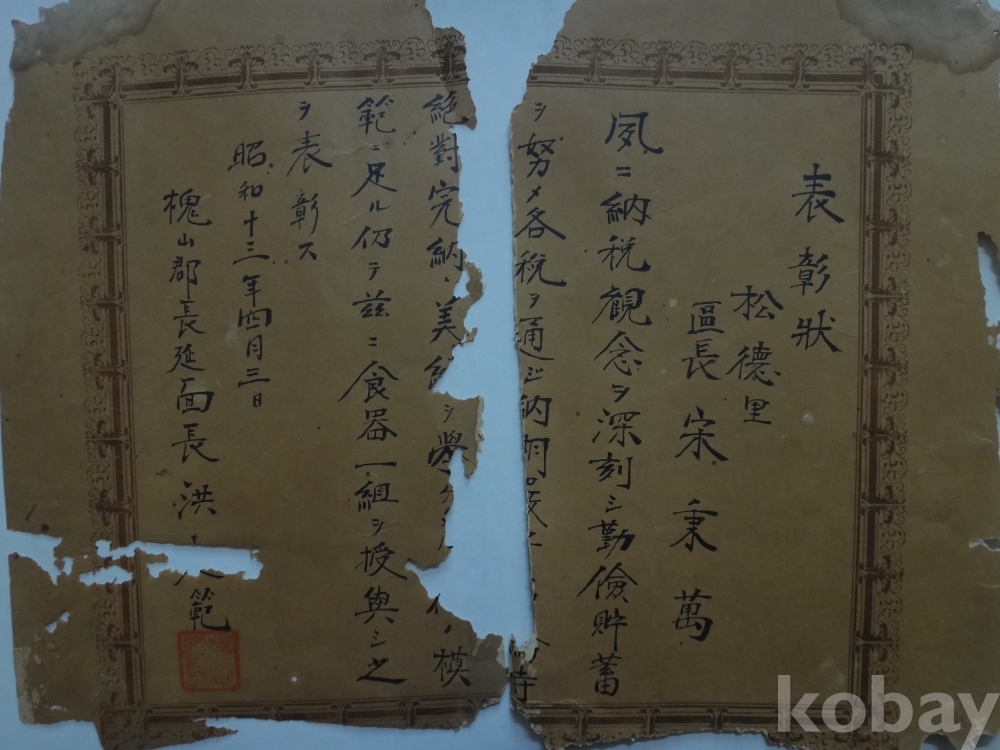 表彰狀
松德里
區長 宋秉萬
夙ニ納稅觀念ヲ深刻ニシ勤儉貯蓄
ヲ努メ各稅ヲ通ジ納期
絶對完納ノ美 ヲ擧ゲ ノ模
範ニ足ル仍テ玆ニ食器一組ヲ授與シ之
ヲ表彰ス
昭和十三年四月三日
槐山郡長延面長 洪 範
kobay